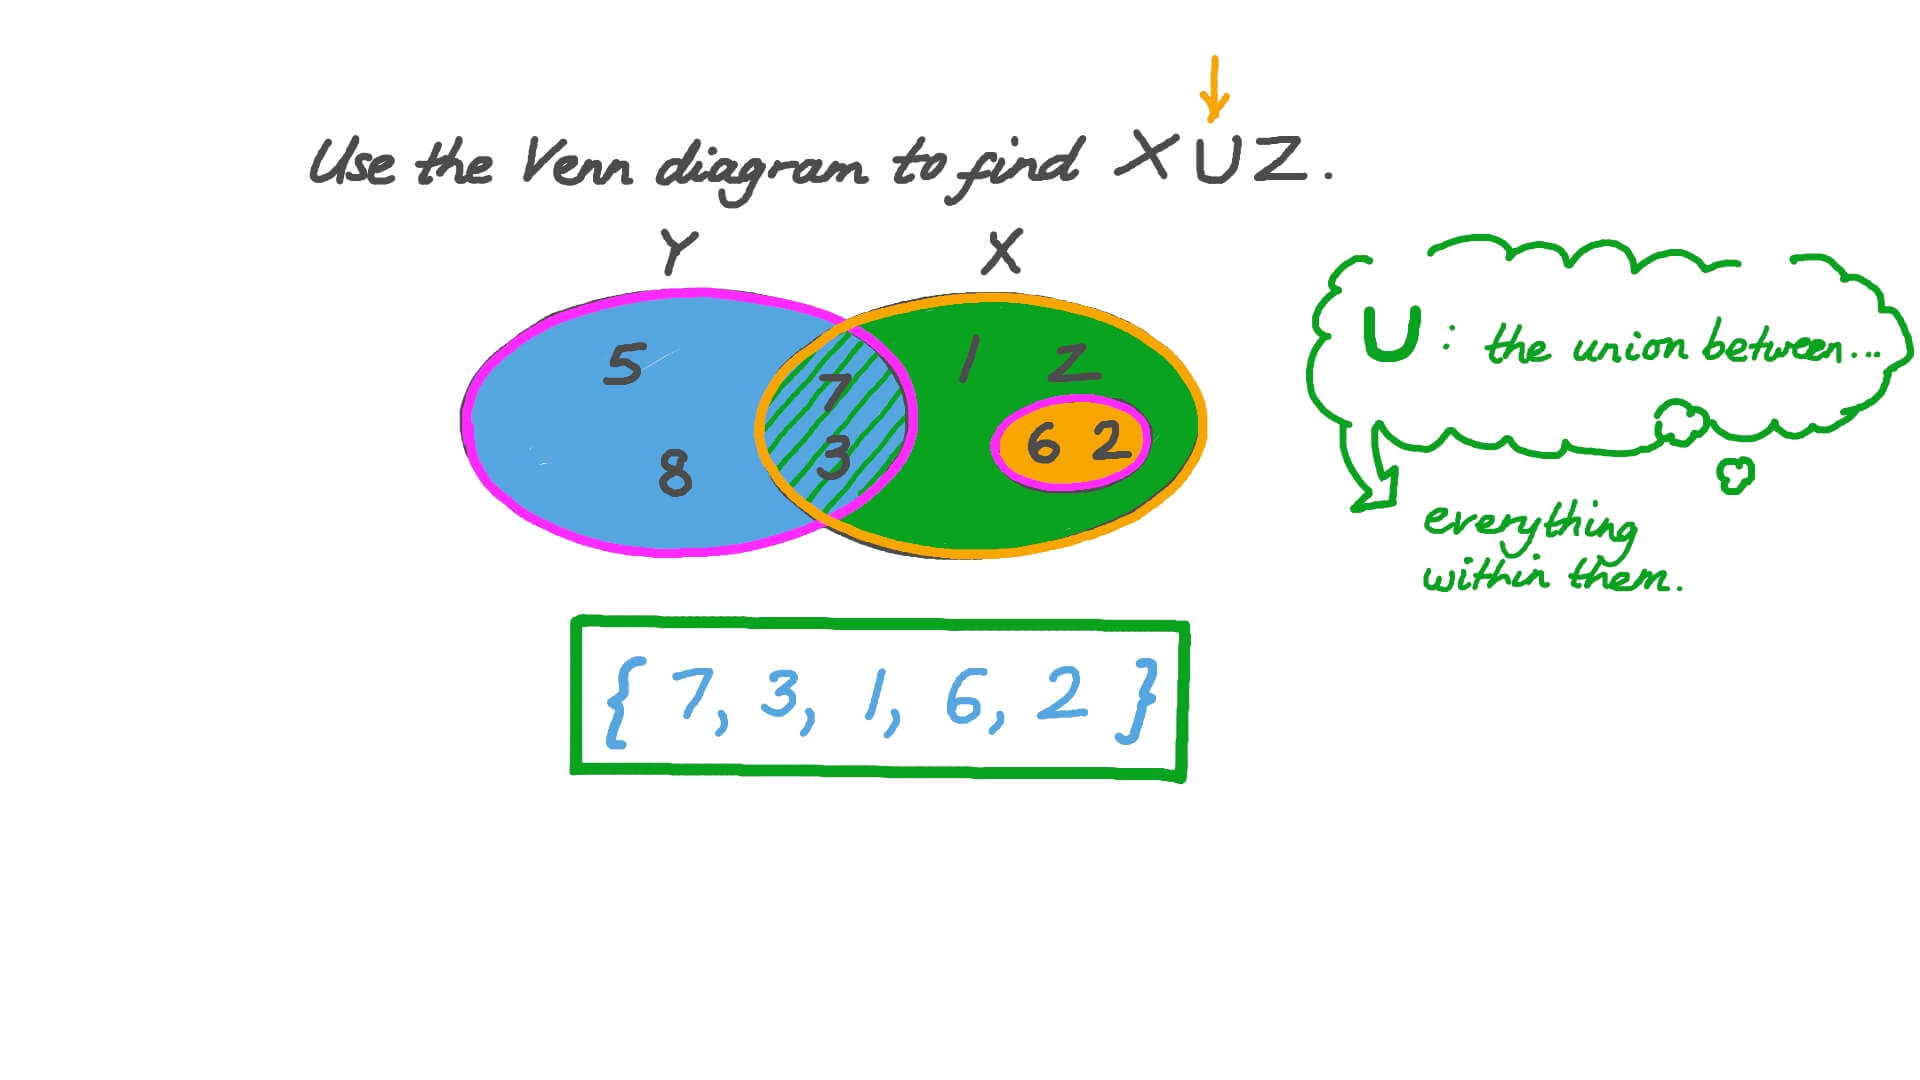 Use the Venn diagram to find X U Z.
Y X
5 7 1 Z
8 3 6 2
U : the union between...
everything
within them.
{ 7, 3, 1, 6, 2 }